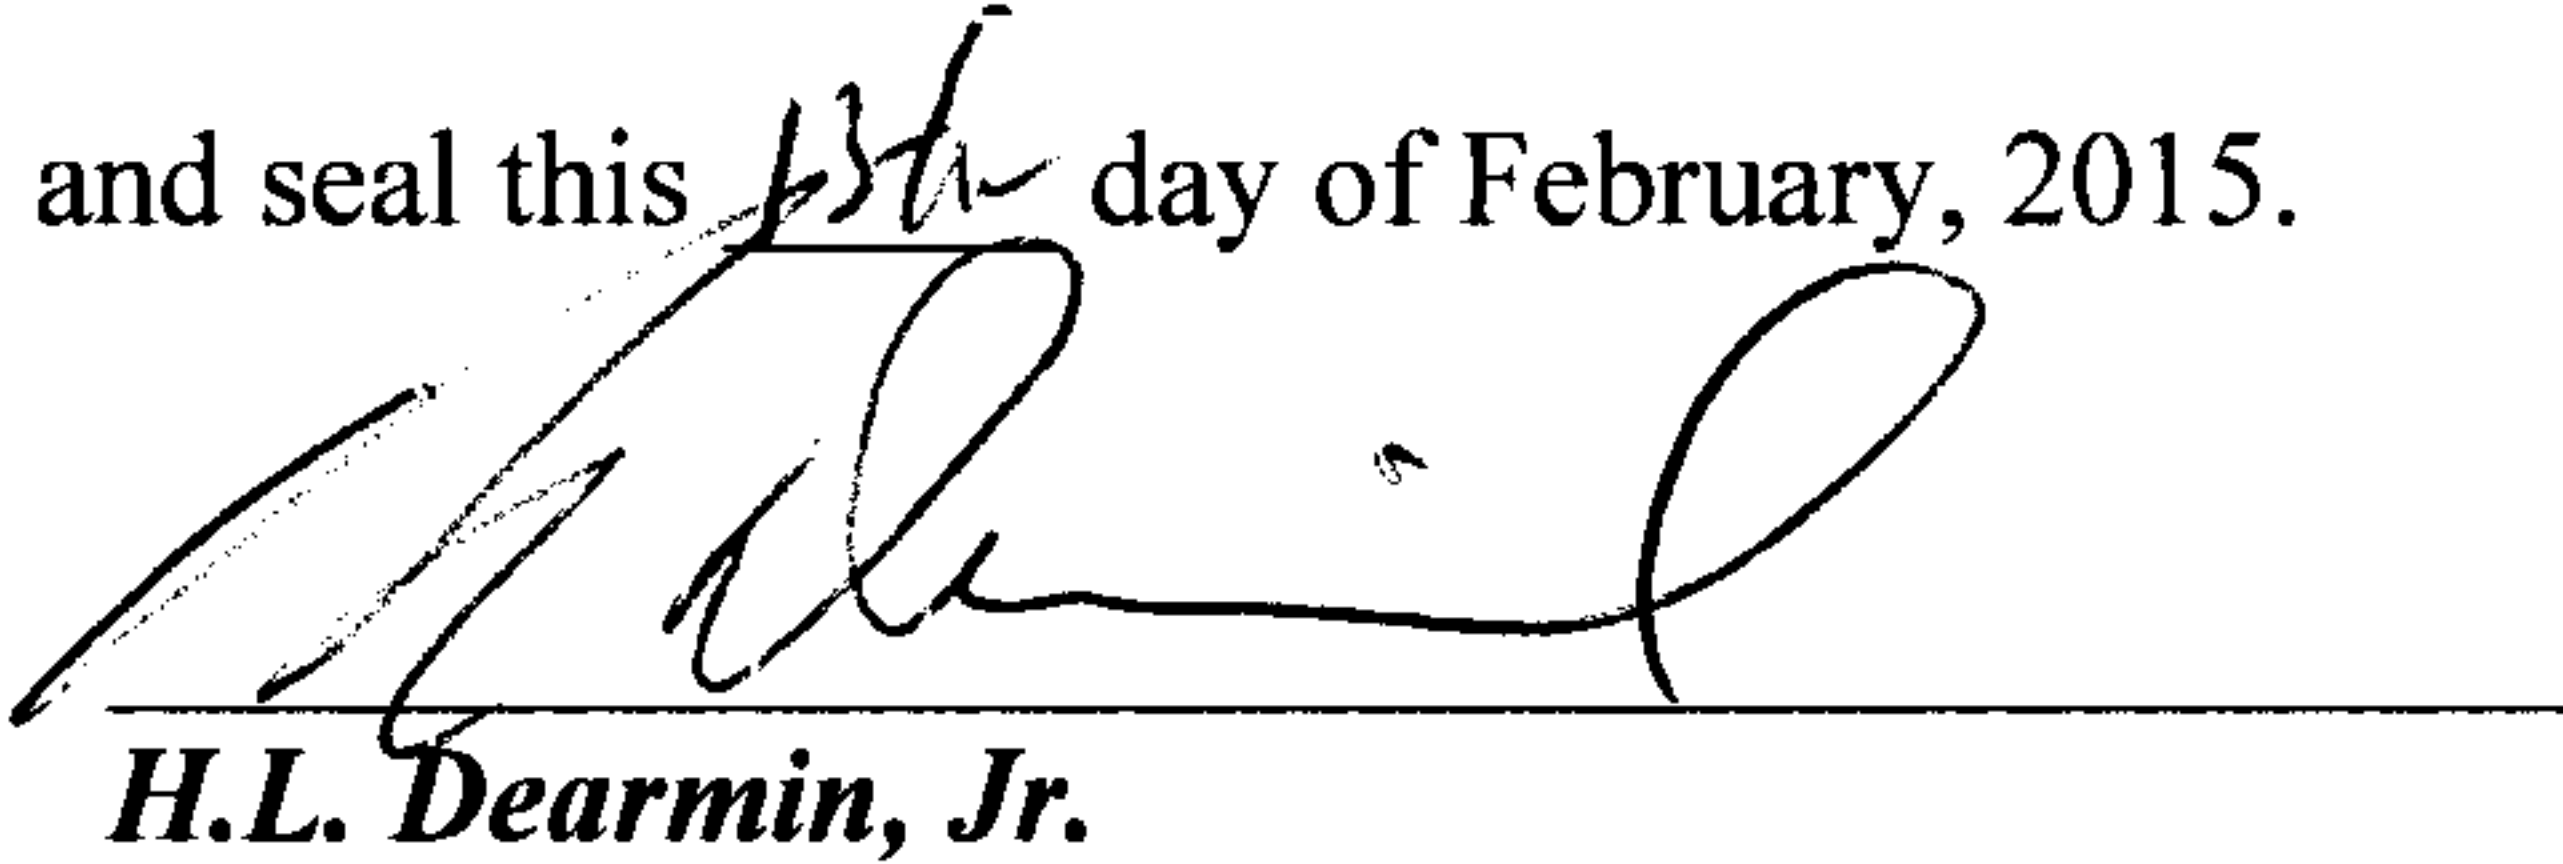 and seal this 13th day of February, 2015.
H.L. Dearmin, Jr.